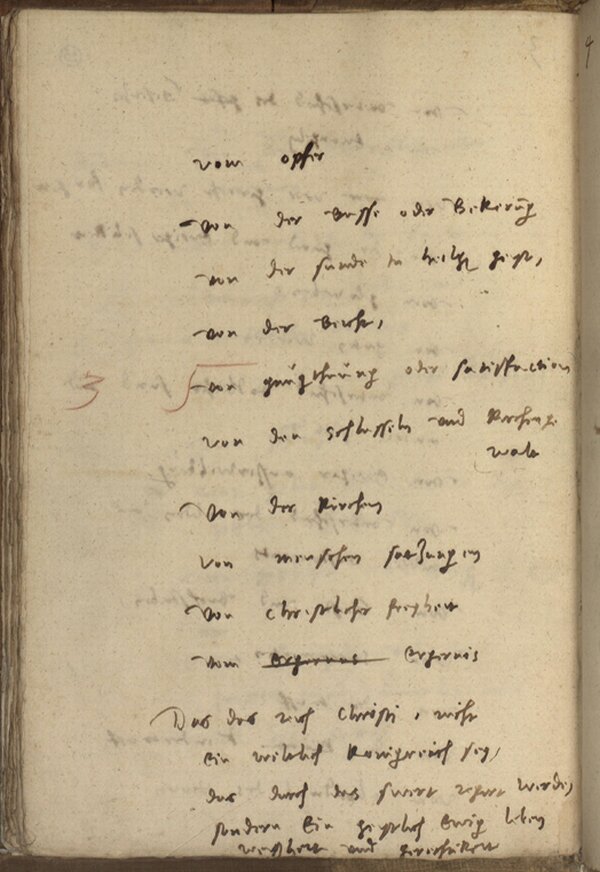 vom opfer
von der busse oder Bekerung
von der sunde in heilgen geist,
von der Beicht,
3 von gnugthuung oder satisfaction
von den schlusseln und Kirchenge
walt
Von der Kirchen
von menschen satzungen
Von Christlicher freyheit
Vom ergernus Ergernis
Das das reich Christi, nicht
ein weltlich Konigreich sey,
das durch das swert regirt werde,
sondern ein geystlich Ewig leben
und gerechtikeit